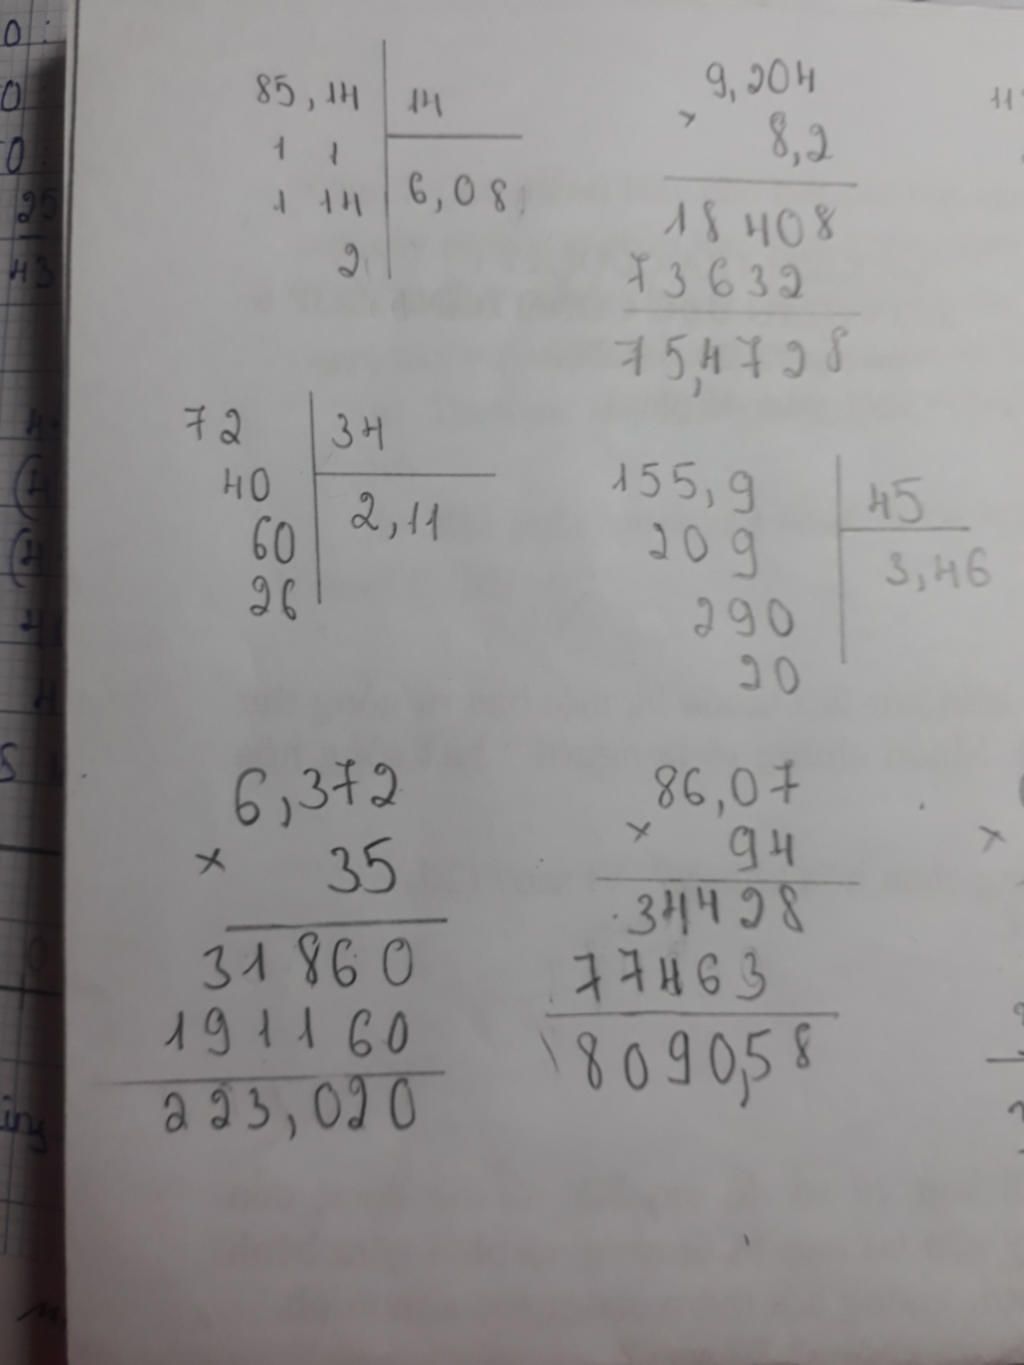 85,14 | 14
1 1
1 14 | 6,08
2
9,204
× 8,2
18408
73632
75,4728
72 | 34
40
60 | 2,11
26
155,9 | 45
209 | 3,46
290
20
6,372
× 35
31860
191160
223,020
86,07
× 94
34428
77463
8090,58
0
0
0
25
43
11
×